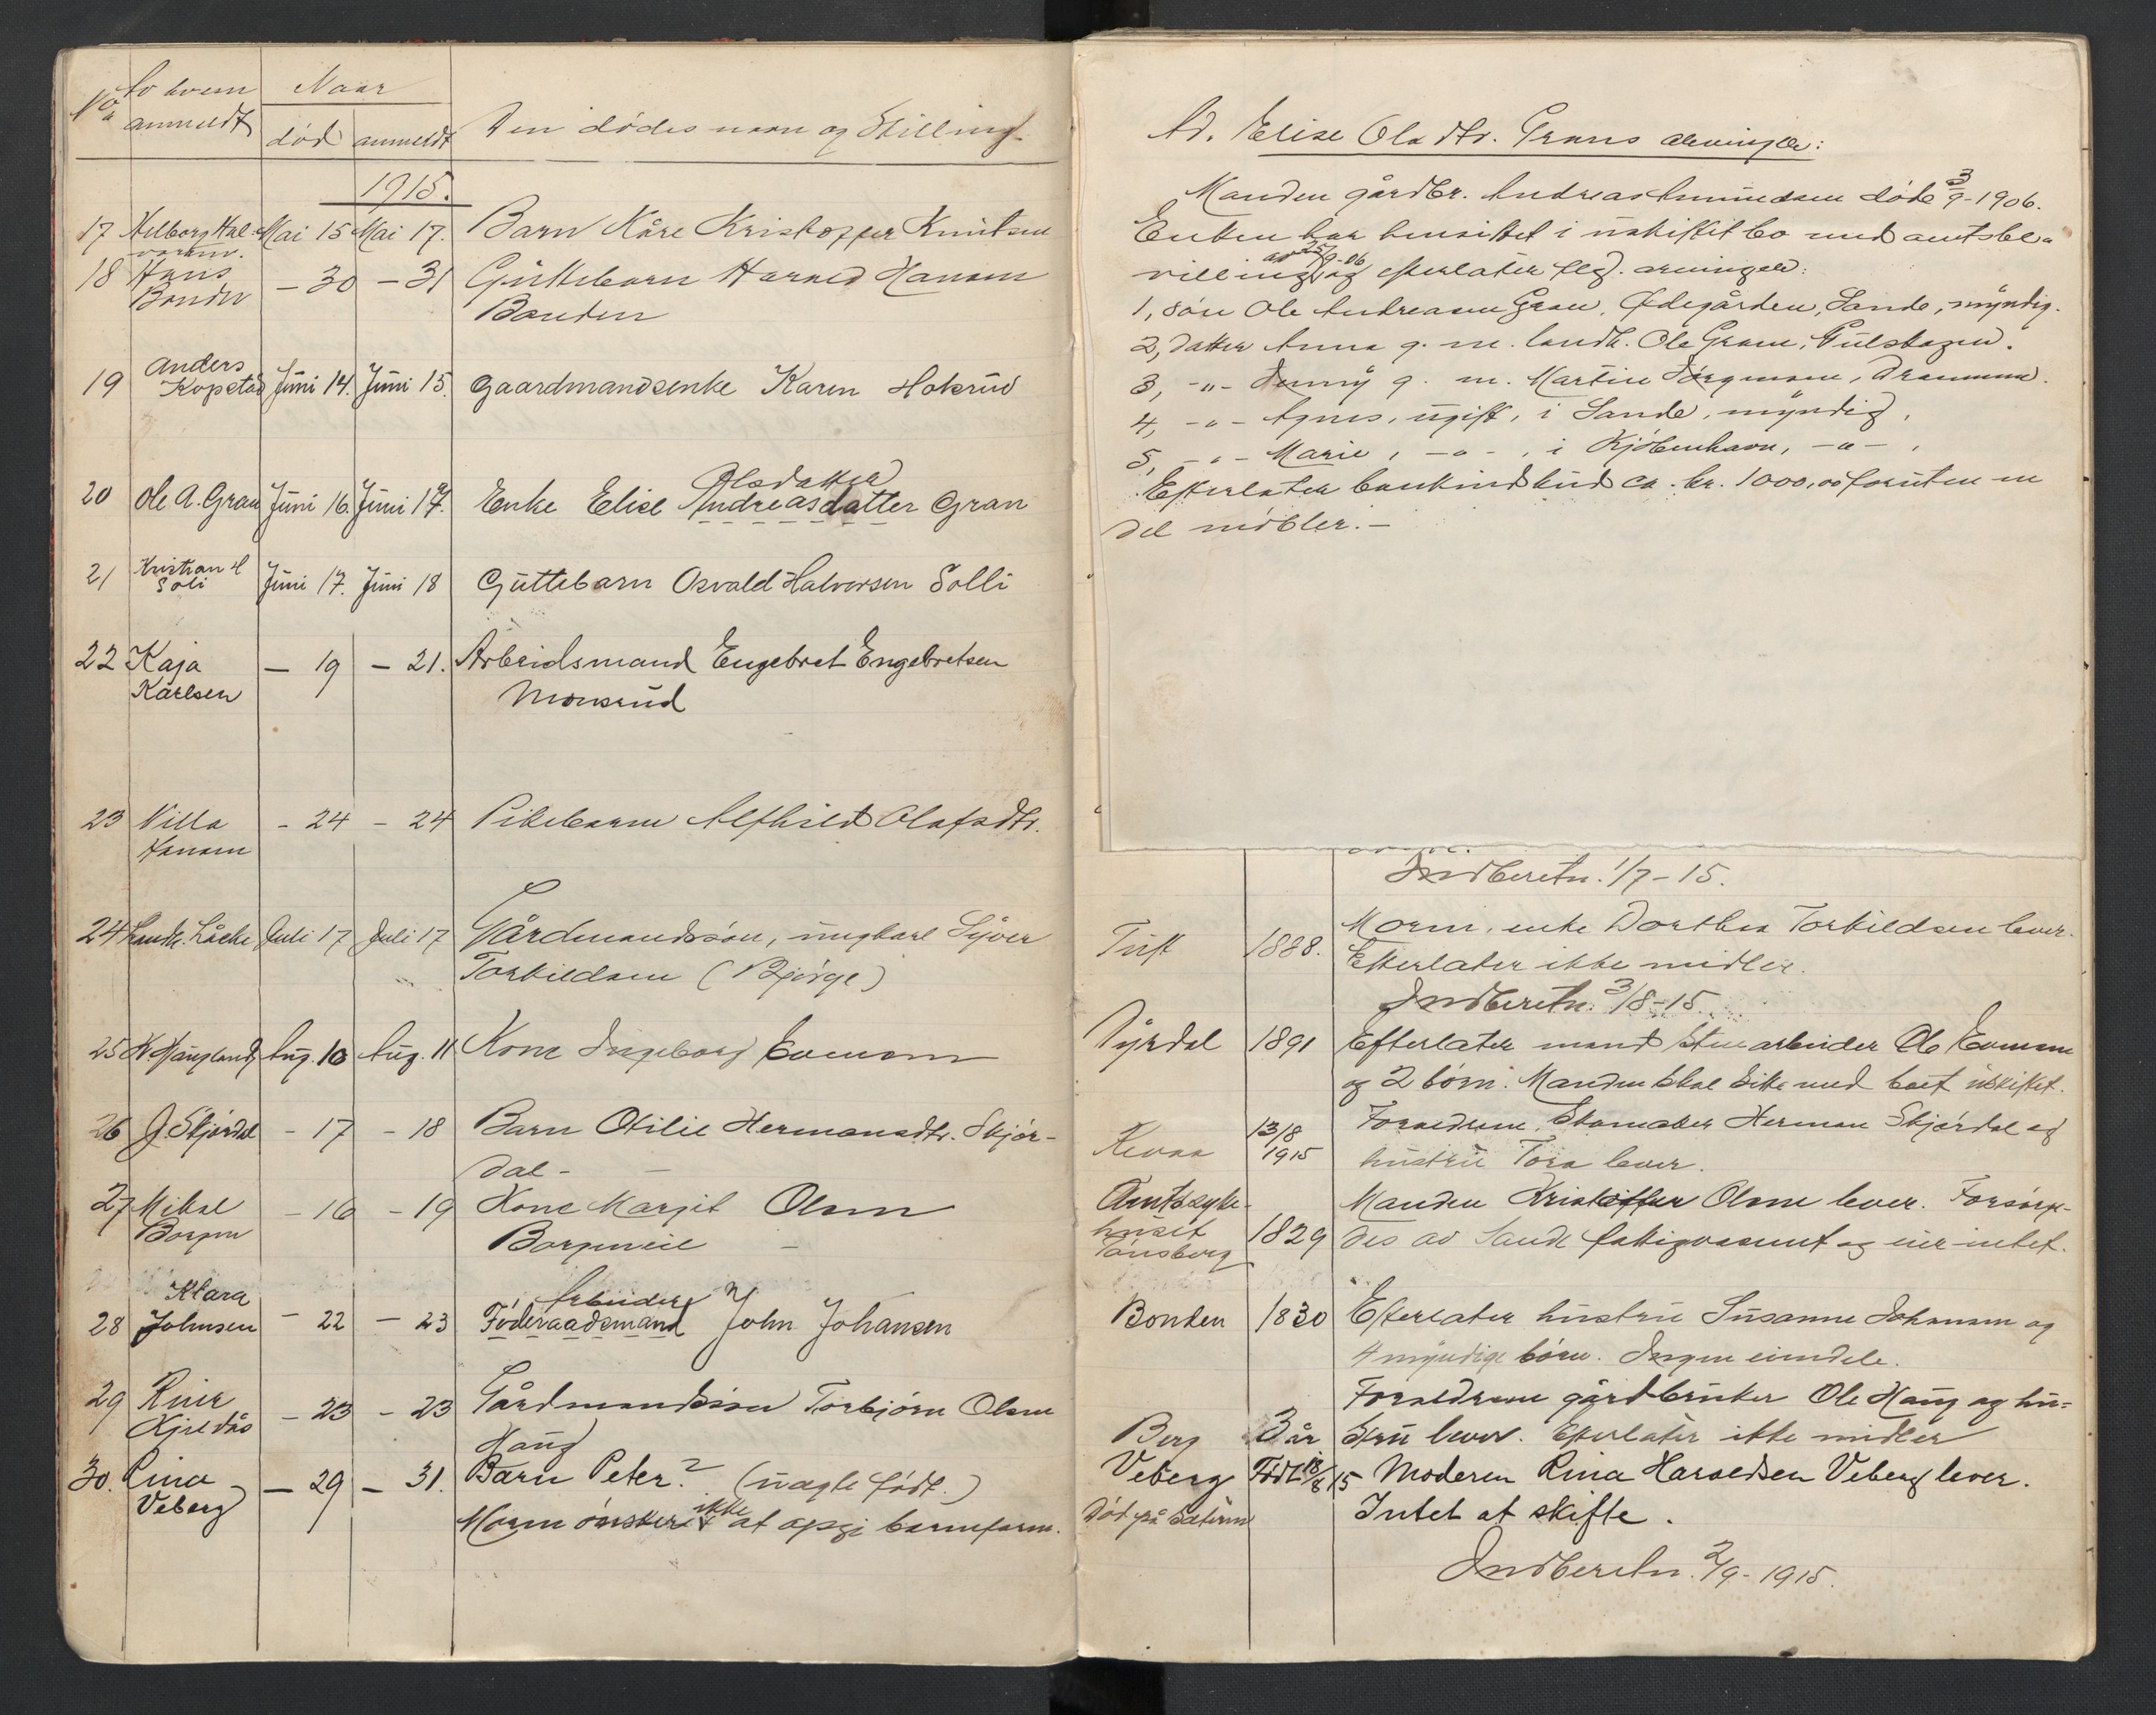 No
Av hvem
anmeldt
Naar
død anmeldt
Den dødes navn og Stilling
1915.
17 Helborg Hal- Mai 15 Mai 17. Barn Kåre Kristoffer Knutsen
vorsen.
18 Hans - 30 - 31 Guttebarn Harald Hansen
Bonden Bonden
19 Anders
Kopstad Juni 14. Juni 15. Gaardmandsenke Karen Hoksrud
Olsdatter
20 Ole A. Gran Juni 16. Juni 17. Enke Elise Andreasdatter Gran
21 Kristian H
Soli Juni 17. Juni 18 Guttebarn Osvald Halvorsen Solli
22 Kaja - 19 - 21. Arbeidsmand Engebret Engebretsen
Karlsen Monsrud
23 Nilla - 24 - 24 Pikebarn Alfhild Olafsdtr.
Hansen
24 Landh. Låche Juli 17 Juli 17 Gårdmandssøn, ungkarl Syver
Torkildsen (Bjørge)
25 N. Haugland Aug. 10 Aug. 11 Kone Ingeborg Evensen
26 J. Skjørdal - 17 - 18 Barn Otilie Hermansdtr. Skjør-
dal -
27 Mikal - 16 - 19 Kone Margit Olsen
Borgen Borgeneie
Klara
Arbeider
28 Johnsen - 22 - 23 Føderaadsmand John Johansen
29 Riner - 23 - 23 Gårdmandssøn Torbjørn Olsen
Kjeldås Haug
30. Rina - 29 - 31. Barn Peter? (uægte født.)
Veberg Moren ønsker ikke at opgi barnefaren.
Ad. Elise Olsdtr. Grans arvinger:
Manden gårdbr. Andreas Amundsen døde 3/9-1906.
Enken har hensittet i uskiftet bo med amtsbe-
villing av 25/9-06 og efterlater flg. arvinger:
1, søn Ole Andreasen Gran, Ødegården, Sande, myndig.
2, datter Anna g. m. landh. Ole Gram, Gulskogen.
3, -"- Jenny g. m. Martin Jørgensen, Drammen.
4, -"- Agnes, ugift, i Sande, myndig.
5, -"- Marie, -"-, i Kjøbenhavn, -"-.
Efterlater bankindskud ca. kr. 1000,00 foruten en
del møbler. -
Indberetn. 1/7-15.
Tuft 1888. Moren, enke Dorthea Torkildsen lever.
Efterlater ikke midler.
Indberetn. 3/8-15.
Dyrdal 1891 Efterlater mand stenarbeider Ole Evensen
og 2 børn. Manden skal sitte med boet uskiftet.
Revaa 13/8 1915 Forældrene, Skomaker Herman Skjørdal og
hustru Tora lever.
Amtssyke-
huset
Tønsberg 1829 Manden Kristoffer Olsen lever. Forsørg-
des av Sande fattigvæsent og eier intet.
Bonden 1830 Efterlater hustru Susanne Johansen og
4 myndige børn. Ingen eiendele.
Forældrene gårdbruker Ole Haug og hu-
Berg 3 år stru lever. Efterlater ikke midler
Veberg Født 18/8 15 Moderen Rina Haraldsen Veberg lever.
Død på sæteren Intet at skifte.
Indberetn. 2/9-1915.